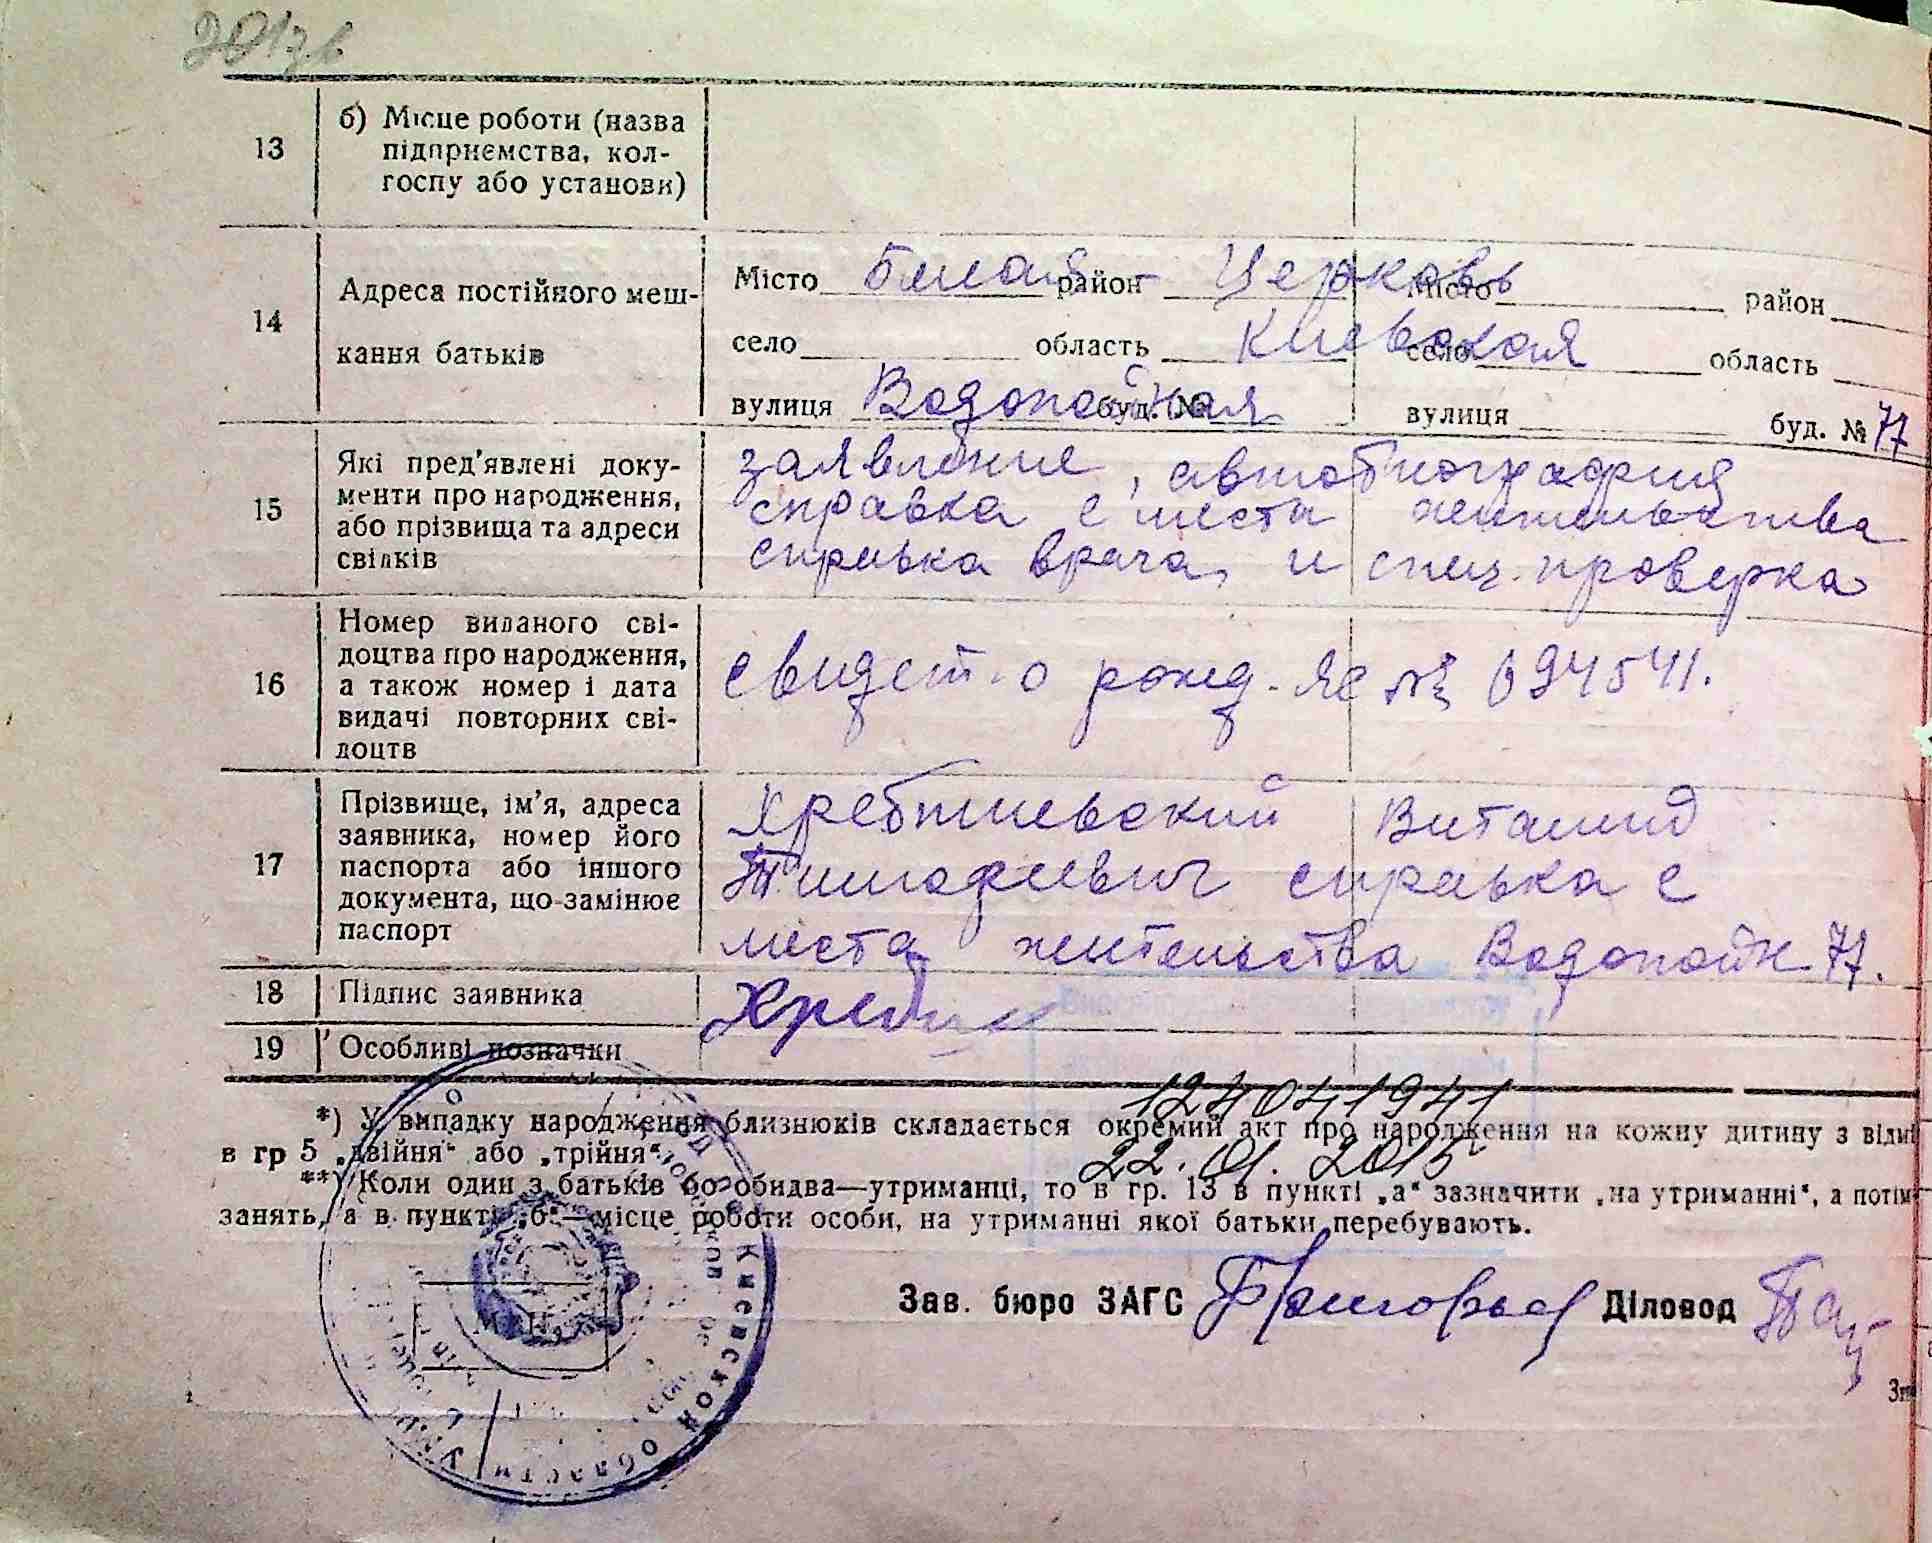 13 б) Місце роботи (назва
підприємства, кол-
госпу або установи)
14 Адреса постійного меш-
кання батьків
Місто Белая район Церковь Місто район
село область Киевская село область
вулиця Водопойная буд. № вулиця буд. № 77
15 Які пред'явлені доку-
менти про народження,
або прізвища та адреси
свідків
заявление, автобиография
справка с места жительства
справка врача, и спец. проверка
16 Номер виданого сві-
доцтва про народження,
а також номер і дата
видачі повторних сві-
доцтв
свидет. о рожд. ЯС № 094541.
17 Прізвище, ім'я, адреса
заявника, номер його
паспорта або іншого
документа, що замінює
паспорт
Хребтиевский Виталий
Тимофиевич справка с
места жительства Водопойн. 77.
18 Підпис заявника
19 Особливі позначки
124041941
*) У випадку народження близнюків складається окремий акт про народження на кожну дитину з відмі
в гр 5 „двійня" або „трійня".
22.01.2015
**) Коли один з батьків або обидва—утриманці, то в гр. 13 в пункті „а" зазначити „на утриманні", а потім
занять, а в пункті „б"—місце роботи особи, на утриманні якої батьки перебувають.
Зав. бюро ЗАГС Діловод
Киевской области